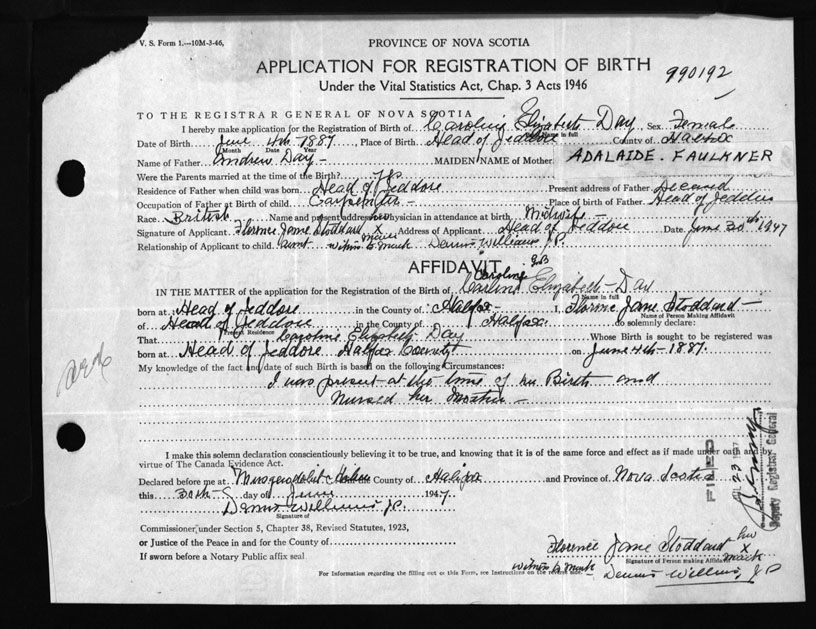 V. S. Form 1.—10M-3-46.
PROVINCE OF NOVA SCOTIA
APPLICATION FOR REGISTRATION OF BIRTH
990192
Under the Vital Statistics Act, Chap. 3 Acts 1946
TO THE REGISTRAR GENERAL OF NOVA SCOTIA
I hereby make application for the Registration of Birth of Caroline Elizabeth Day Sex Female
Name in full
Date of Birth June 4th 1887 Place of Birth Head of Jeddore County of Halifax
Month Date Year
Name of Father Andrew Day — MAIDEN NAME of Mother ADALAIDE. FAULKNER
Were the Parents married at the time of the Birth? Yes
Residence of Father when child was born Head of Jeddore Present address of Father Deceased
Occupation of Father at Birth of child Carpenter — Place of birth of Father Head of Jeddore
Race British Name and present address physician in attendance at birth Midwife —
Signature of Applicant Florence Jane Stoddard her X mark Address of Applicant Head of Jeddore Date June 30th 1947
Relationship of Applicant to child Aunt witness to mark Dennis Williams J.P.
AFFIDAVIT
Caroline
IN THE MATTER of the application for the Registration of the Birth of Elizabeth Day
Name in full
born at Head of Jeddore in the County of Halifax I, Florence Jane Stoddard —
Name of Person Making Affidavit
of Head of Jeddore in the County of Halifax do solemnly declare:
Present Residence
That Caroline Elizabeth Day Whose Birth is sought to be registered was
born at Head of Jeddore Halifax County on June 4th — 1887.
My knowledge of the fact and date of such Birth is based on the following Circumstances:
I was present at the time of her Birth and
Nursed her Mother —
I make this solemn declaration conscientiously believing it to be true, and knowing that it is of the same force and effect as if made under oath by
virtue of The Canada Evidence Act.
Declared before me at Musquodoboit Harbour County of Halifax and Province of Nova Scotia
this 30th day of June 1947
Dennis Williams J.P.
Signature of
Commissioner under Section 5, Chapter 38, Revised Statutes, 1923,
or Justice of the Peace in and for the County of
If sworn before a Notary Public affix seal
Florence Jane Stoddard her X mark
Signature of Person making Affidavit
witness to mark Dennis Williams, J P
For Information regarding the filling out of this Form, see Instructions on the reverse side.
FILED
Deputy Registrar General